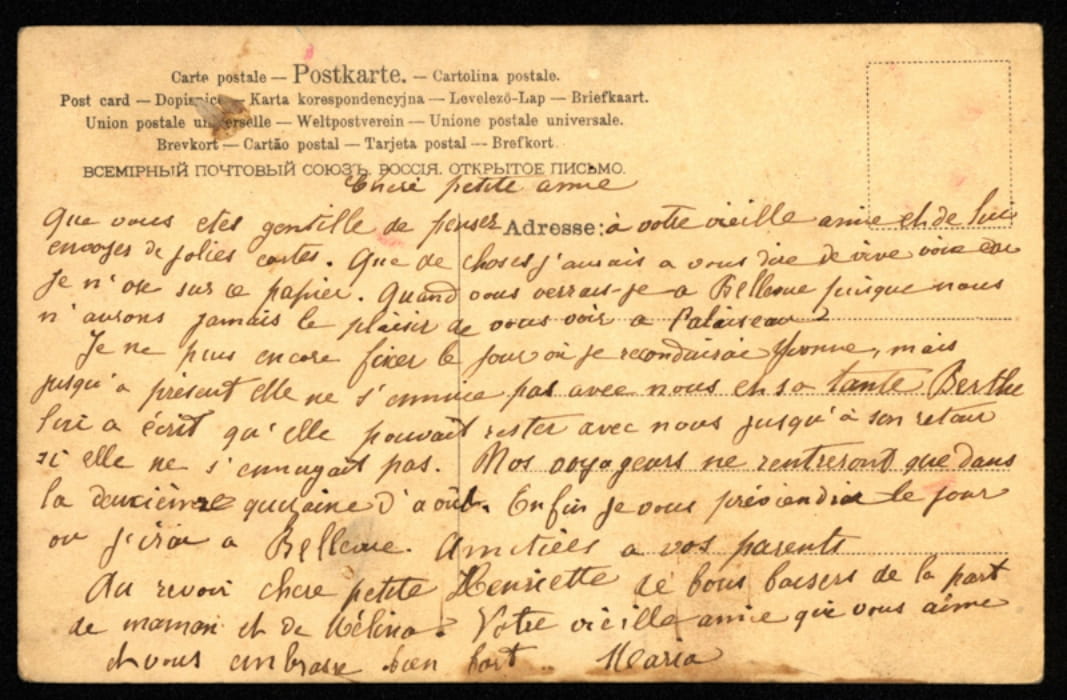 Carte postale — Postkarte. — Cartolina postale.
Post card — Dopisnice — Karta korespondencyjna — Levelező-Lap — Briefkaart.
Union postale universelle — Weltpostverein — Unione postale universale.
Brevkort — Cartão postal — Tarjeta postal — Brefkort.
ВСЕМІРНЫЙ ПОЧТОВЫЙ СОЮЗЪ. РОССІЯ. ОТКРЫТОЕ ПИСЬМО.
Chere petite amie
Que vous etes gentille de penser Adresse: à votre vieille amie et de lui
envoyer de jolies cartes. Que de choses j'aurais a vous dire de vive voix car
Je n'ose sur ce papier. Quand vous verrais-je a Bellevue puisque nous
n'aurons jamais le plaisir de vous voir a Palaiseau ?
Je ne puis encore fixer le jour où je reconduirai Yvonne, mais
jusqu'a présent elle ne s'ennuie pas avec nous et sa tante Berthe
lui a écrit qu'elle pouvait rester avec nous jusqu'à son retour
si elle ne s'ennuyait pas. Nos voyageurs ne rentreront que dans
la deuxième quizaine d'août. Enfin je vous préviendrai le jour
ou j'irai a Bellevue. Amitiées a vos parents
Au revoir chere petite Henriette de bons baisers de la part
de maman et de Mélina. Votre vieille amie qui vous aime
et vous embrasse bien fort. Maria